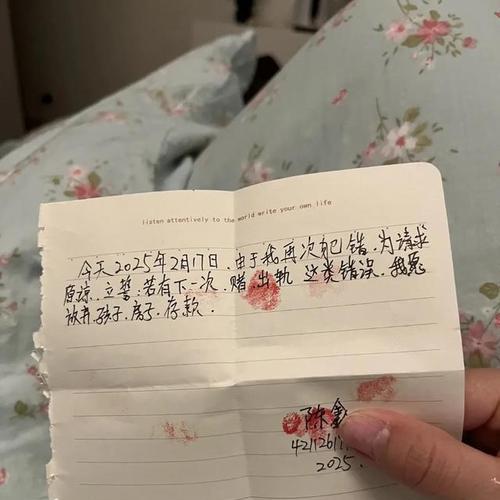 listen attentively to the world write your own life
今天2025年2月17日,由于我再次犯错,为请求
原谅,立誓若有下一次,赌,出轨 这类错误,我愿
放弃,孩子,房子,存款.
陈
2025.